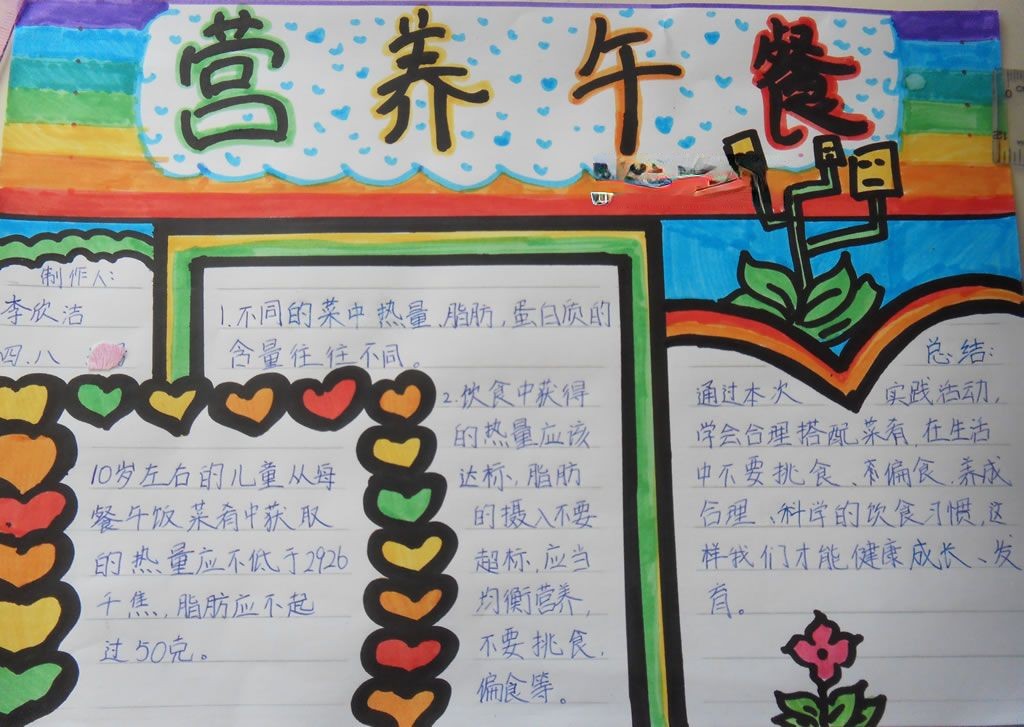 营养午餐
制作人:
李欣洁
四.八
1.不同的菜中热量.脂肪,蛋白质的
含量往往不同。
2.饮食中获得
的热量应该
达标,脂肪
的摄入不要
超标,应当
均衡营养,
不要挑食,
偏食等。
10岁左右的儿童从每
餐午饭菜肴中获取
的热量应不低于2926
千焦,脂肪应不起
过50克。
总结:
通过本次 实践活动,
学会合理搭配菜肴,在生活
中不要挑食、不偏食.养成
合理、科学的饮食习惯,这
样我们才能健康成长、发
育。